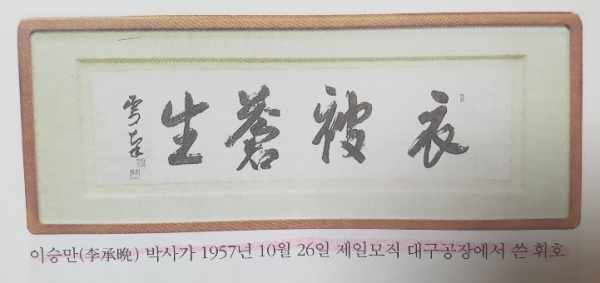 衣被蒼生
雩南
이승만(李承晩) 박사가 1957년 10월 26일 제일모직 대구공장에서 쓴 휘호